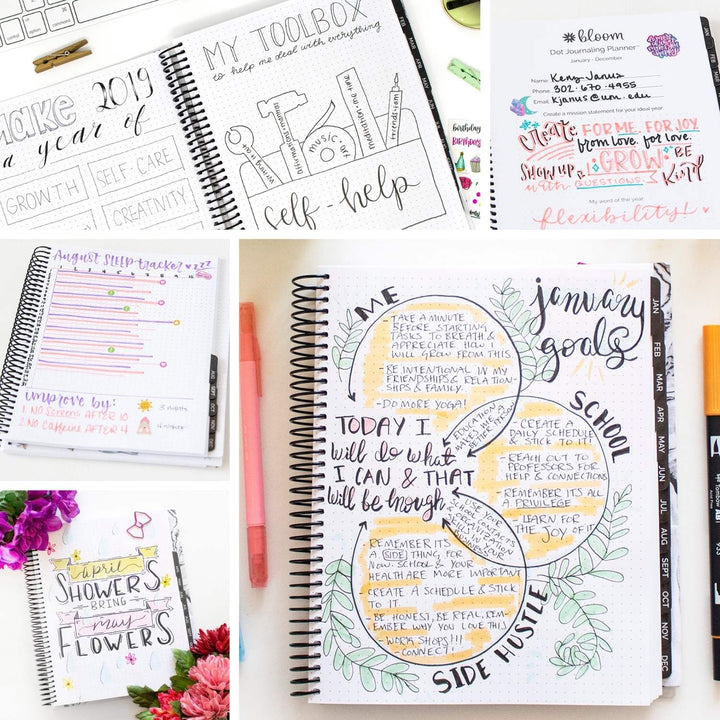 MAKE 2019
a year of
GROWTH
SELF-CARE
CREATIVITY
MY TOOLBOX
to help me deal with everything
writing it out
affirmations/mantras
music/art
meditation/me time
friends/fam
self-help
FEB
MAR
birthday
Birthdays
bloom
Dot Journaling Planner™
January - December
Name Keny Janus
Phone 302-670-4955
Email
Create a mission statement for your ideal year.
Create FOR ME. FOR JOY.
from love. for love.
SHOW UP & GROW. BE
with QUESTIONS. Kind
My word of the year
flexibility!
August SLEEP tracker zzz
Improve by:
1. NO SCREENS AFTER 10
2. NO CAFFEINE AFTER 4
april
SHOWERS
BRING
may
FLOWERS
january
goals
ME
- TAKE A MINUTE
BEFORE STARTING
TASKS TO BREATH &
APPRECIATE HOW I
WILL GROW FROM THIS
- BE INTENTIONAL IN MY
FRIENDSHIPS & RELATION-
SHIPS & FAMILY.
- DO MORE YOGA!
EDUCATION
MAKES ME A
BETTER PERSON
SCHOOL
- CREATE A
DAILY SCHEDULE
& STICK TO IT!
- REACH OUT TO
PROFESSORS FOR
HELP & CONNECTIONS
- REMEMBER ITS ALL
A PRIVILEGE
- LEARN FOR
THE JOY OF IT
TODAY I
will do what
I CAN & THAT
will be enough
USE YOUR
SCHOOL CONTACTS
FOR
- REMEMBER ITS
A SIDE THING FOR
NOW. SCHOOL & YOUR
HEALTH ARE MORE IMPORTANT
- CREATE A SCHEDULE & STICK
TO IT
- BE HONEST, BE REAL, REM-
EMBER WHY YOU LOVE THIS
- WORK SHOPS!!!
- CONNECT!
SIDE HUSTLE
JAN
FEB
MAR
APR
MAY
JUN
JUL
AUG
SEPT
OCT
NOV
DEC
Tombow